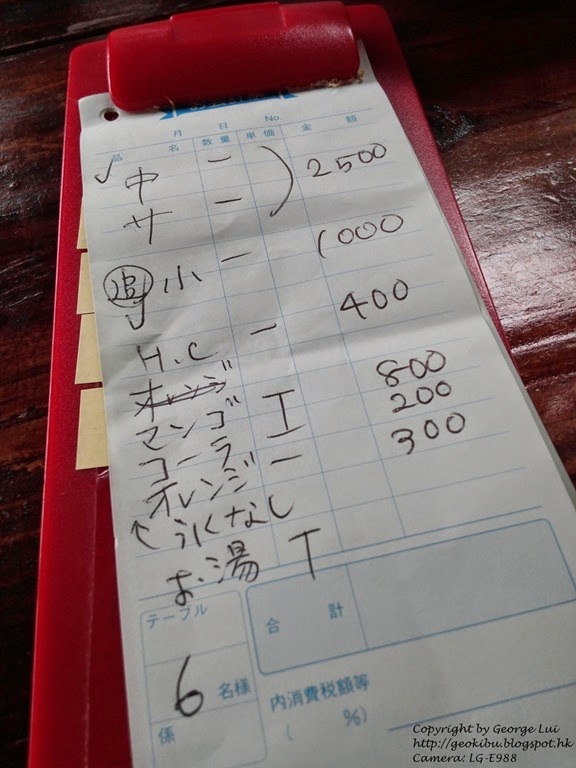 月 日 No.
品 名 数量 単価 金 額
✓ 中 一 ) 2500
サ 一
追 小 一 1000
H.C 一 400
オレンジ
マンゴ 工 800
コーラ 200
オレンジ 一 300
↖ 氷なし
お湯 T
テーブル
6 名様
係
合 計
内消費税額等
( %)
Copyright by George Lui
http://geokibu.blogspot.hk
Camera: LG-E988